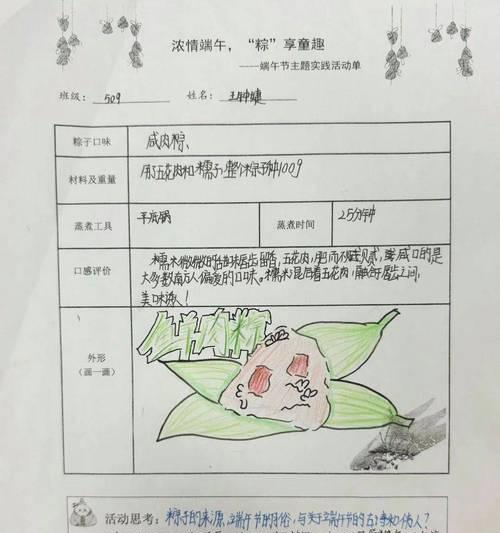 浓情端午，“粽”享童趣
——端午节主题实践活动单
班级：509 姓名：王钟婕
粽子口味 咸肉粽、
材料及重量 用了五花肉和糯子，整个粽子种100g
蒸煮工具 平底锅 蒸煮时间 25分钟
口感评价 糯米微微的 唇齿留香，五花肉，肥而不 咸口的是
大多数南方人偏爱的口味。糯米混着五花肉，融合于唇齿之间，
美味浓！
外形
（画一画）
肉粽
活动思考：粽子的来源，端午节的习俗，与关于端午节的古诗和伟人？